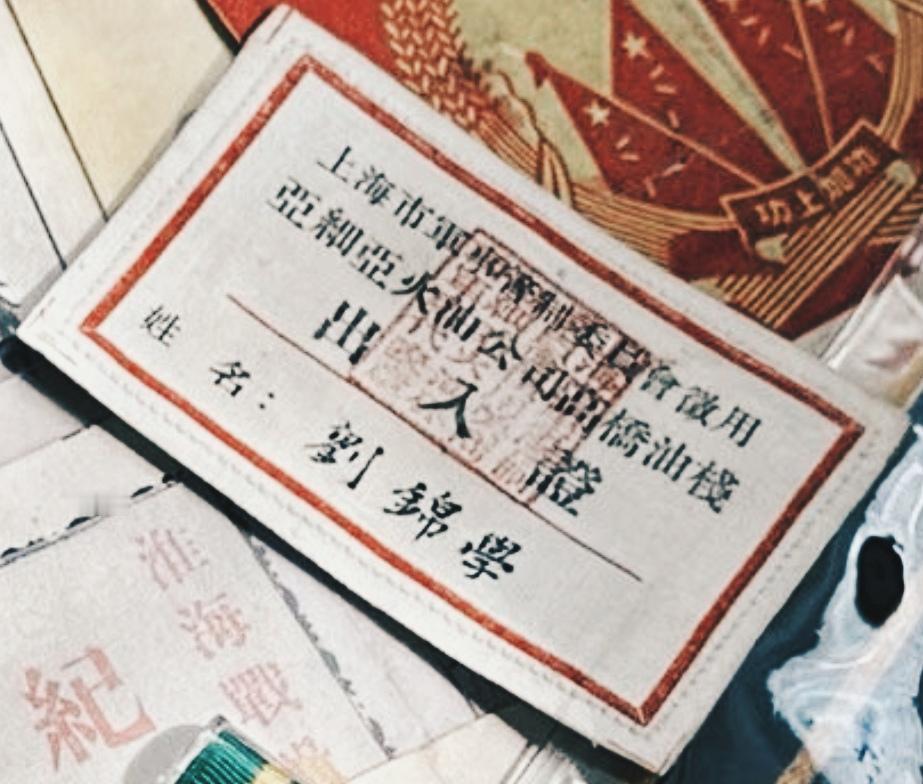 功上加功
上海市軍事管制委員會徵用
亞細亞火油公司高橋油棧
出入證
姓名：劉錦學
淮海戰
紀